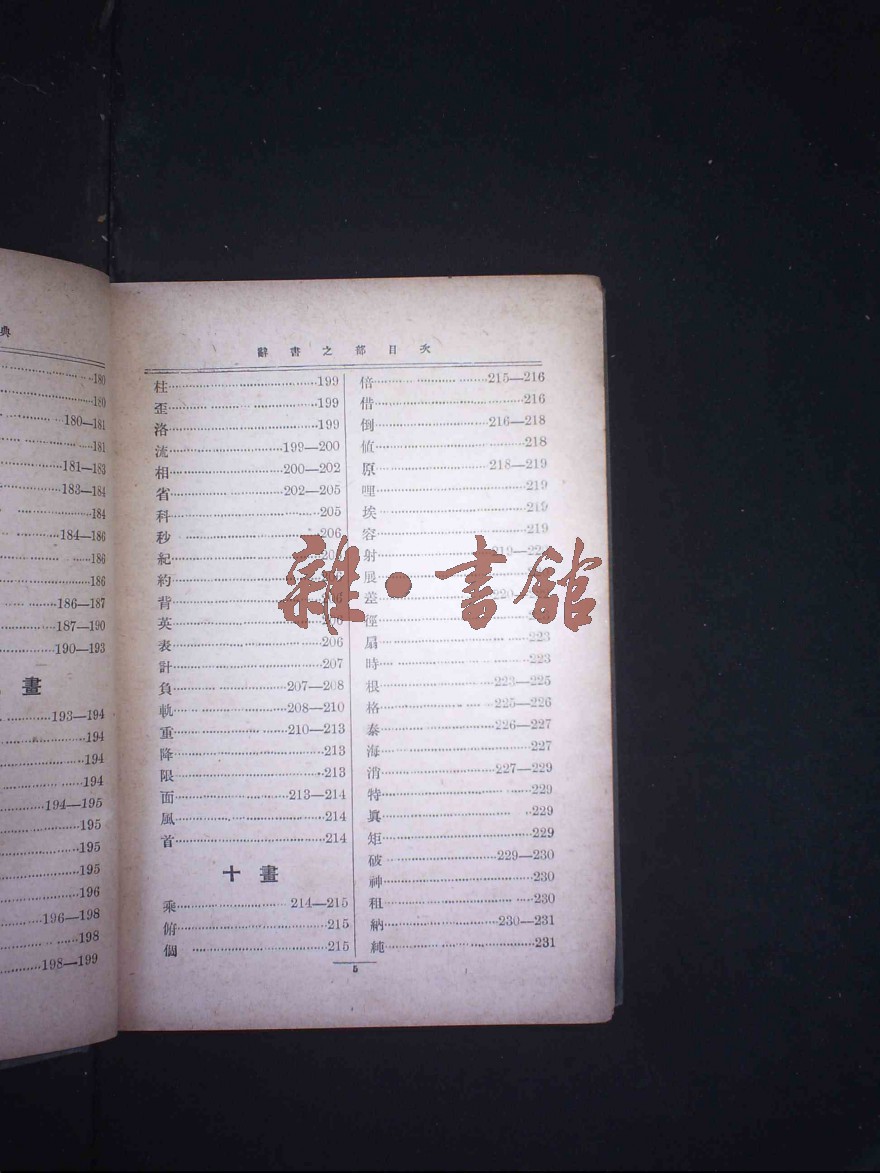 典
180
180
180—181
181
181—183
183—184
184
184—186
186
186
186—187
187—190
190—193
畫
193—194
194
194
194
194—195
195
195
195
196
196—198
198
198—199
辭書之部目次
柱 199
歪 199
洛 199
流 199—200
相 200—202
省 202—205
科 205
秒 206
紀
約
背
英
表 206
計 207
負 207—208
軌 208—210
重 210—213
降 213
限 213
面 213—214
風 214
首 214
十畫
乘 214—215
俯 215
個 215
倍 215—216
借 216
倒 216—218
値 218
原 218—219
哩 219
埃 219
容 219
射
展
差
徑
扇 223
時 223
根 223—225
格 225—226
泰 226—227
海 227
消 227—229
特 229
眞 229
矩 229
破 229—230
神 230
租 230
納 230—231
純 231
5
雜·書館